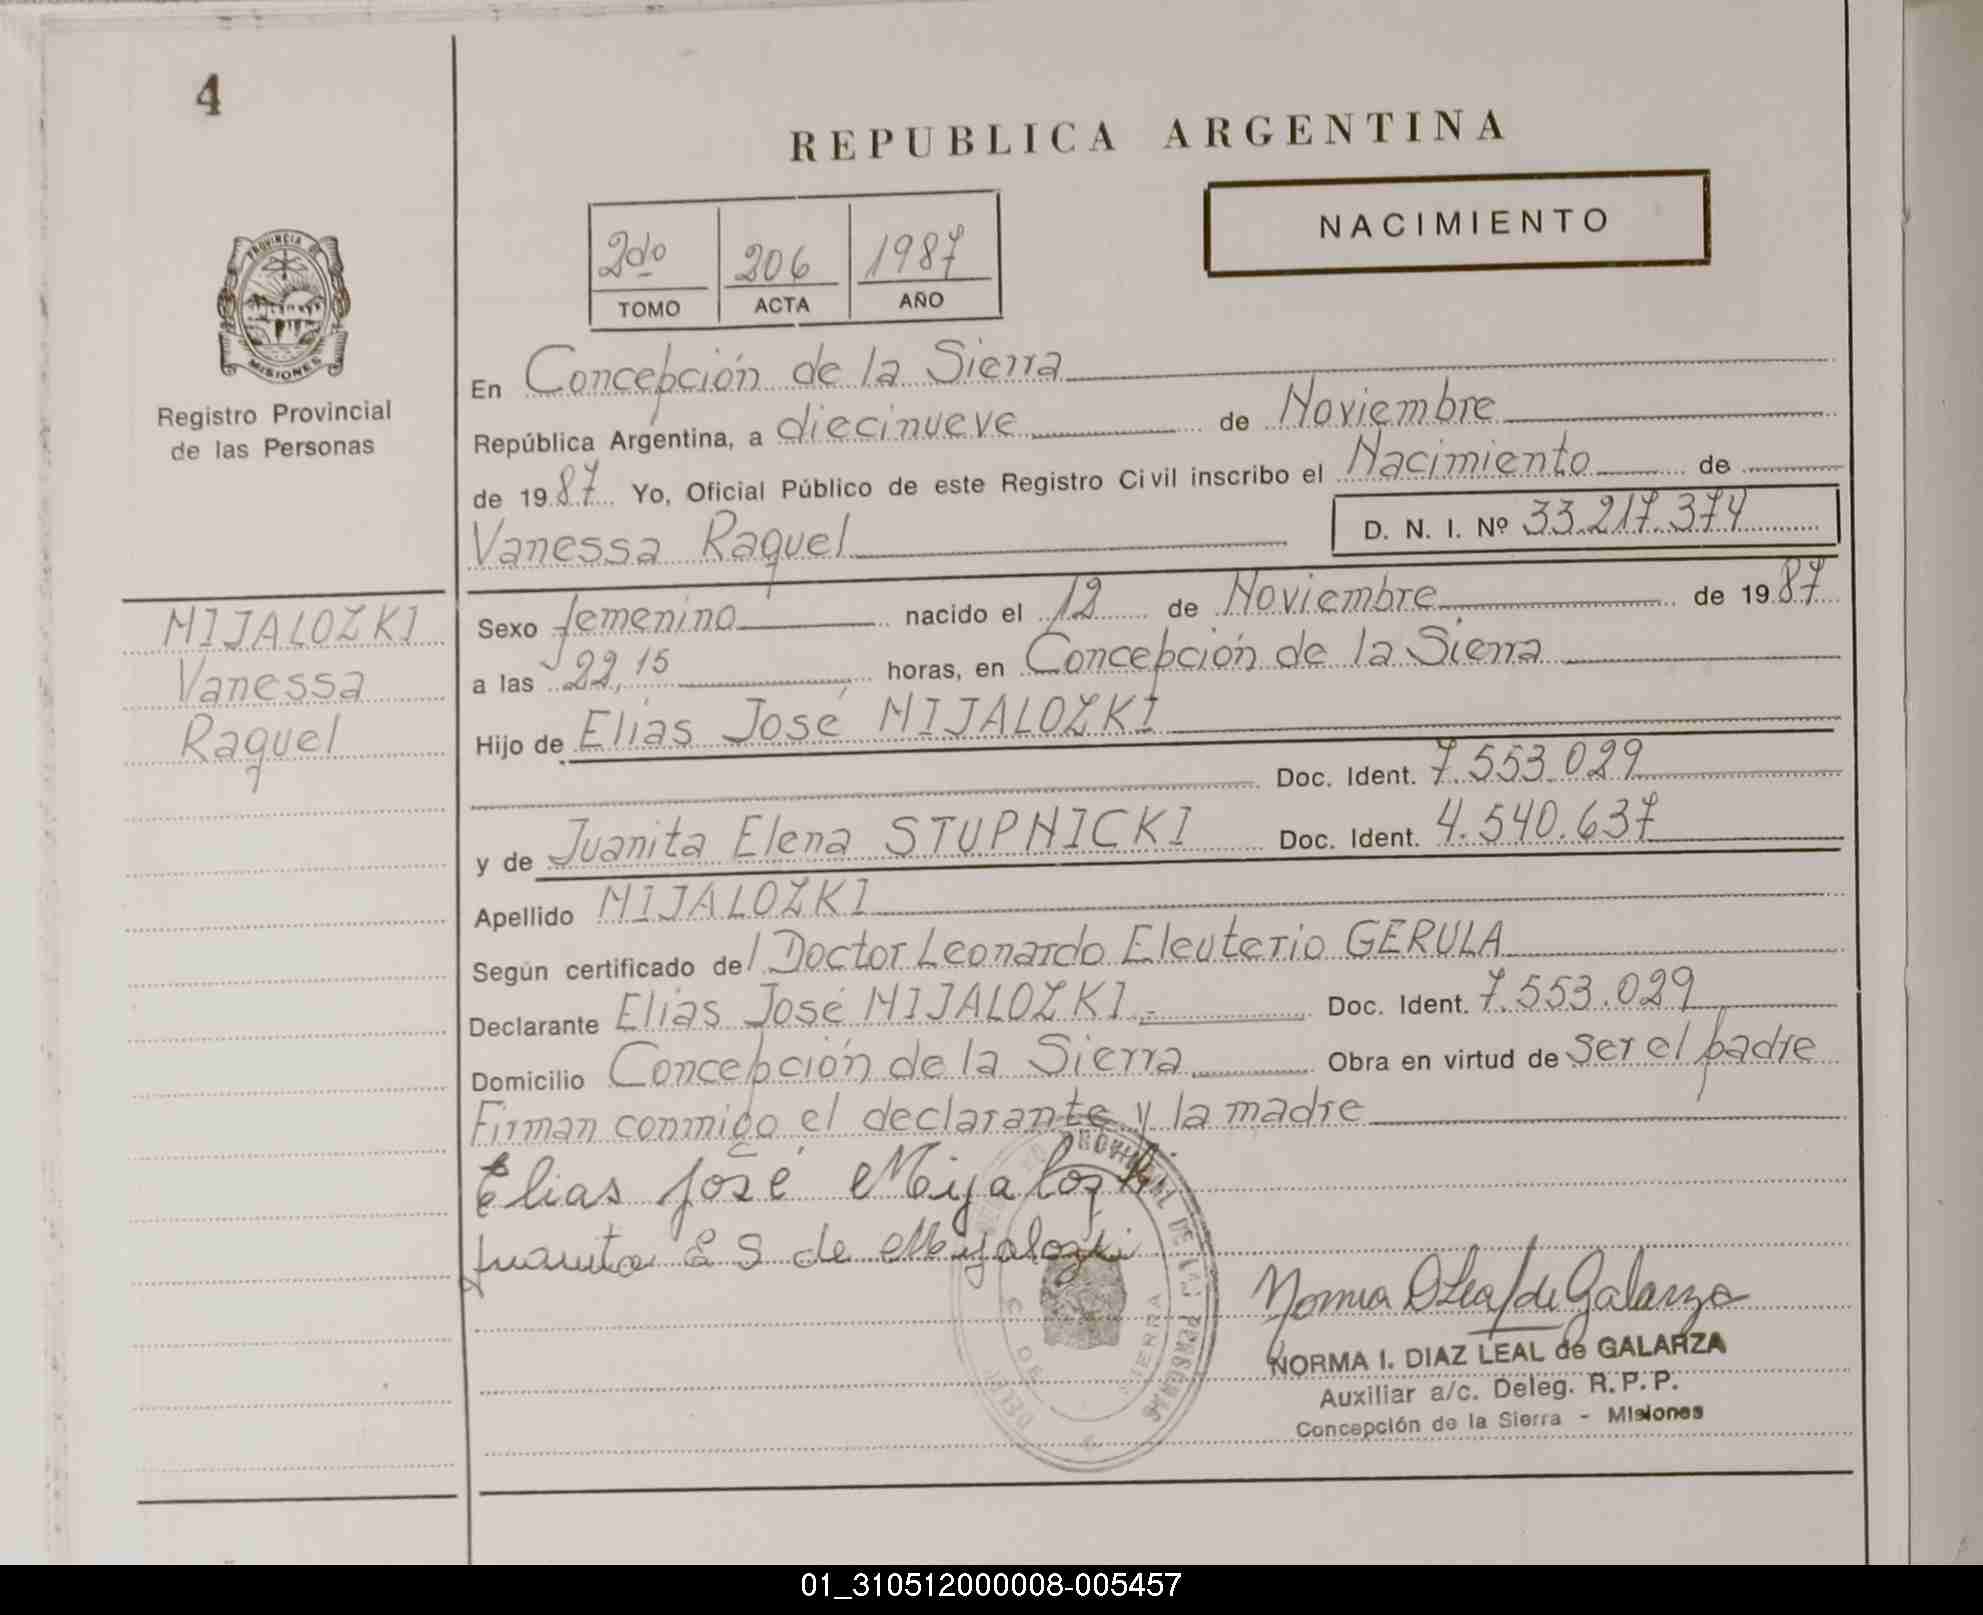 4
REPUBLICA ARGENTINA
NACIMIENTO
2do 206 1987
TOMO ACTA AÑO
PROVINCIA DE
MISIONES
Registro Provincial
de las Personas
En Concepción de la Sierra
República Argentina, a diecinueve de Noviembre
de 1987 Yo, Oficial Público de este Registro Civil inscribo el Nacimiento de
Vanessa Raquel D. N. I. Nº 33.217.374
MIJALOZKI
Vanessa
Raquel
Sexo femenino nacido el 12 de Noviembre de 1987
a las 22,15 horas, en Concepción de la Sierra
Hijo de Elías José MIJALOZKI
Doc. Ident. 7.553.029
y de Juanita Elena STUPNICKI Doc. Ident. 4.540.637
Apellido MIJALOZKI
Según certificado del Doctor Leonardo Eleuterio GERULA
Declarante Elías José MIJALOZKI.- Doc. Ident. 7.553.029
Domicilio Concepción de la Sierra Obra en virtud de ser el padre
Firman conmigo el declarante y la madre
Elias José Mijalozki
Juanita E S de Mijalozki
PROVINCIAL DE LAS PERSONAS
SIERRA
Norma D Leal de Galarza
NORMA I. DIAZ LEAL de GALARZA
Auxiliar a/c. Deleg. R. P. P.
Concepción de la Sierra - Misiones
01_310512000008-005457